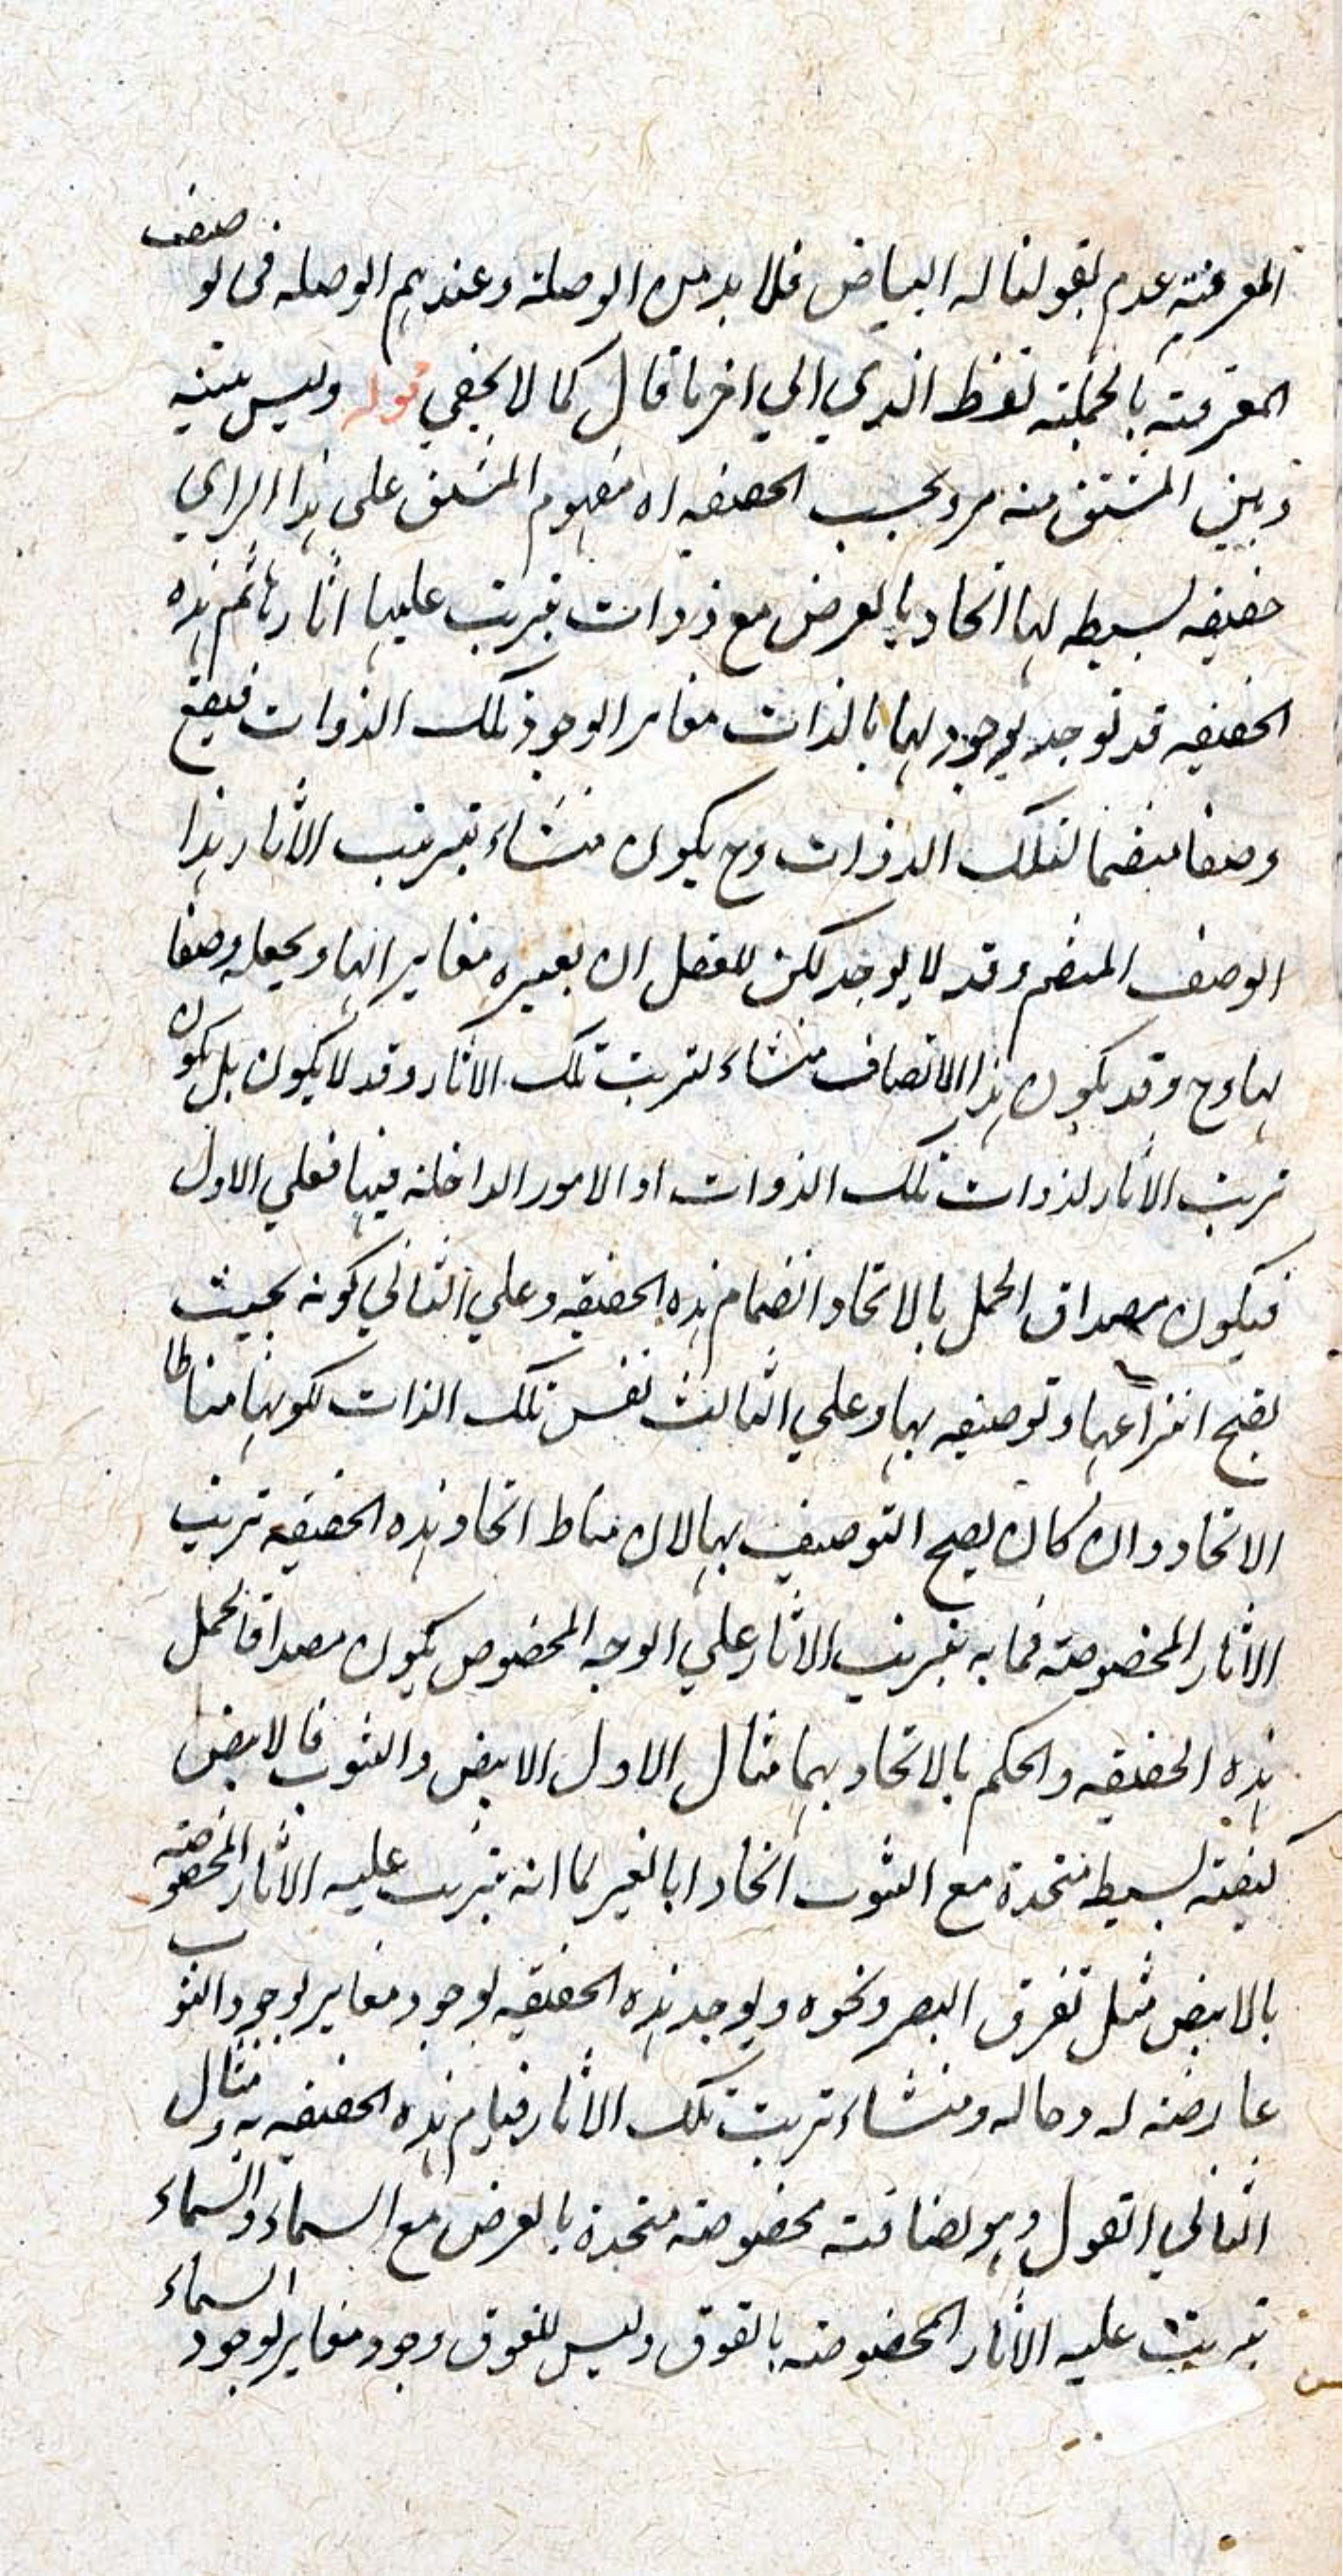 المعرفته عدم بقولنا له البياض فلا بد من الوصلة وعندهم الوصله فى توصيف
المعرفته بالجملته لفظ الذي الي اخر ما قال كما لا يخفي قوله وليس بينه
وبين المشتق منه مرد بحسب الحقيقه اه مفهوم المشتق على هذا الراي
حقيقه بسيطه لها اتحاد بالعرض مع ذوات يترتب عليها اثارها ثم هذه
الحقيقه قد توجد بوجود لها بالذات مغاير الوجود تلك الذوات فيقع
وصفا منضما لتلك الذوات وح يكون منشاء بترتب الاثار هذا
الوصف المنضم وقد لا يوجد لكن للعقل ان يعبره مغايرا لها ويجعله وصفا
لها وح وقد يكون هذا الاتصاف منشاء لترتب تلك الاثار وقد لا يكون بل يكون
ترتب الاثار لذوات تلك الذوات او الامور الداخلته فيها فعلي الاول
فيكون مصداق الحمل بالاتحاد انضمام هذه الحقيقه وعلي الثاني كونه بحيث
يصح انتزاعها وتوصيفه بها وعلي الثالث نفس تلك الذات لكونها مناطا
الاتحاد وان كان يصح التوصيف بها لان مناط اتحاد هذه الحقيقه ترتب
الاثار المخصوصته فما به يترتب الاثار علي الوجه المخصوص يكون مصداقا لحمل
هذه الحقيقه والحكم بالاتحاد بها مثال الاول الابيض والثوب فالابيض
كيفته بسيط متحدة مع الثوب اتحادا بالغير لما انه يترتب عليه الاثار المخصوصته
بالابيض مثل تفرق البصر ونحوه ويوجد هذه الحقيقه بوجود مغاير لوجود الثوب
عارضته له وحاله ومنشاء ترتب تلك الاثار قيام هذه الحقيقه به ومثال
الثاني الفوق وهو اضافته مخصوصته متحدة بالعرض مع السماء والسماء
يترتب عليه الاثار المخصوصته بالفوق وليس للفوق وجود مغاير لوجود السماء